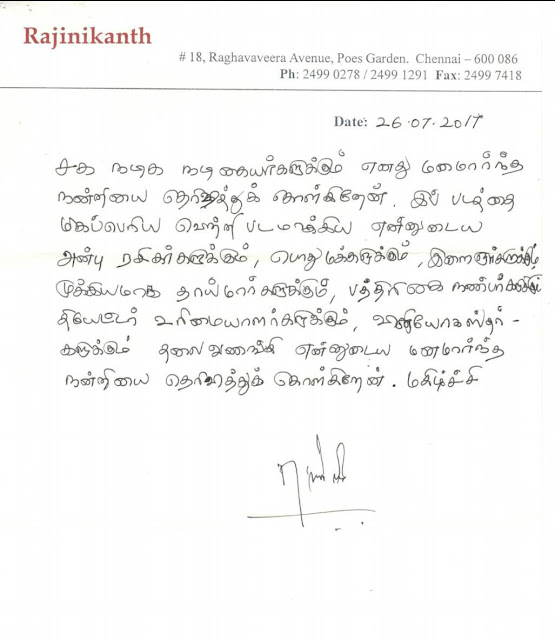 Rajinikanth
# 18, Raghavaveera Avenue, Poes Garden. Chennai – 600 086
Ph: 2499 0278 / 2499 1291 Fax: 2499 7418
Date: 26.07.2017
சக நடிக நடிகையர்களுக்கும் எனது மனமார்ந்த
நன்றியை தெரிவித்துக் கொள்கிறேன். இப் படத்தை
மிகப்பெரிய வெற்றி படமாக்கிய என்னுடைய
அன்பு ரசிகர்களுக்கும், பொது மக்களுக்கும், இளைஞர்களுக்கும்
முக்கியமாக தாய்மார்களுக்கும், பத்திரிகை நண்பர்களுக்கும்
தியேட்டர் உரிமையாளர்களுக்கும், வினியோகஸ்தர் -
களுக்கும் தலைவணங்கி என்னுடைய மனமார்ந்த
நன்றியை தெரிவித்துக் கொள்கிறேன். மகிழ்ச்சி